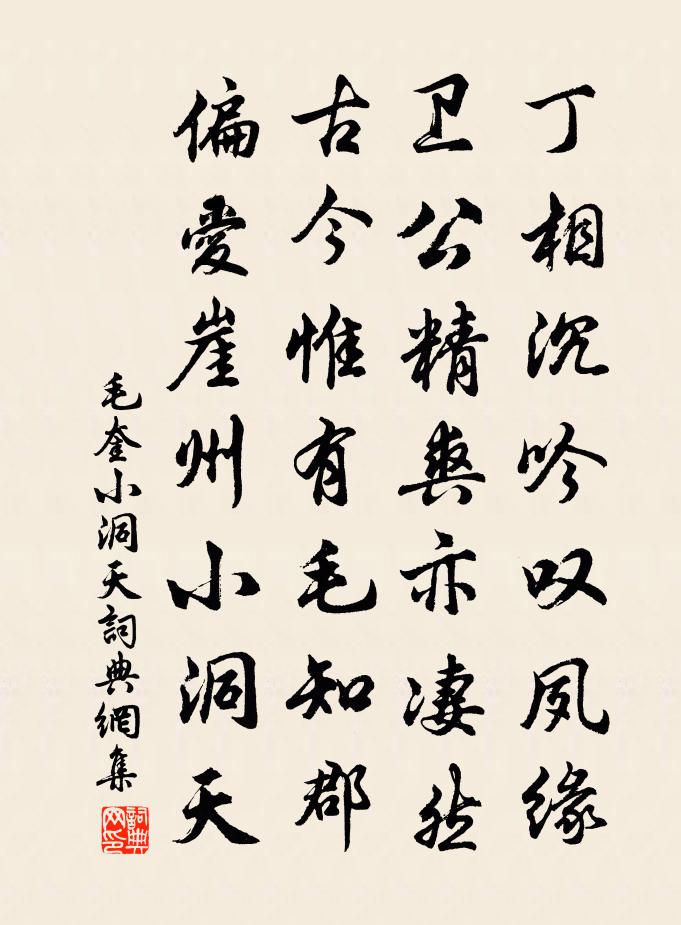 丁相沉吟叹夙缘
卫公精爽亦凄然
古今惟有毛知郡
偏爱崖州小洞天
毛奎小洞天詞典網集
詞典網印